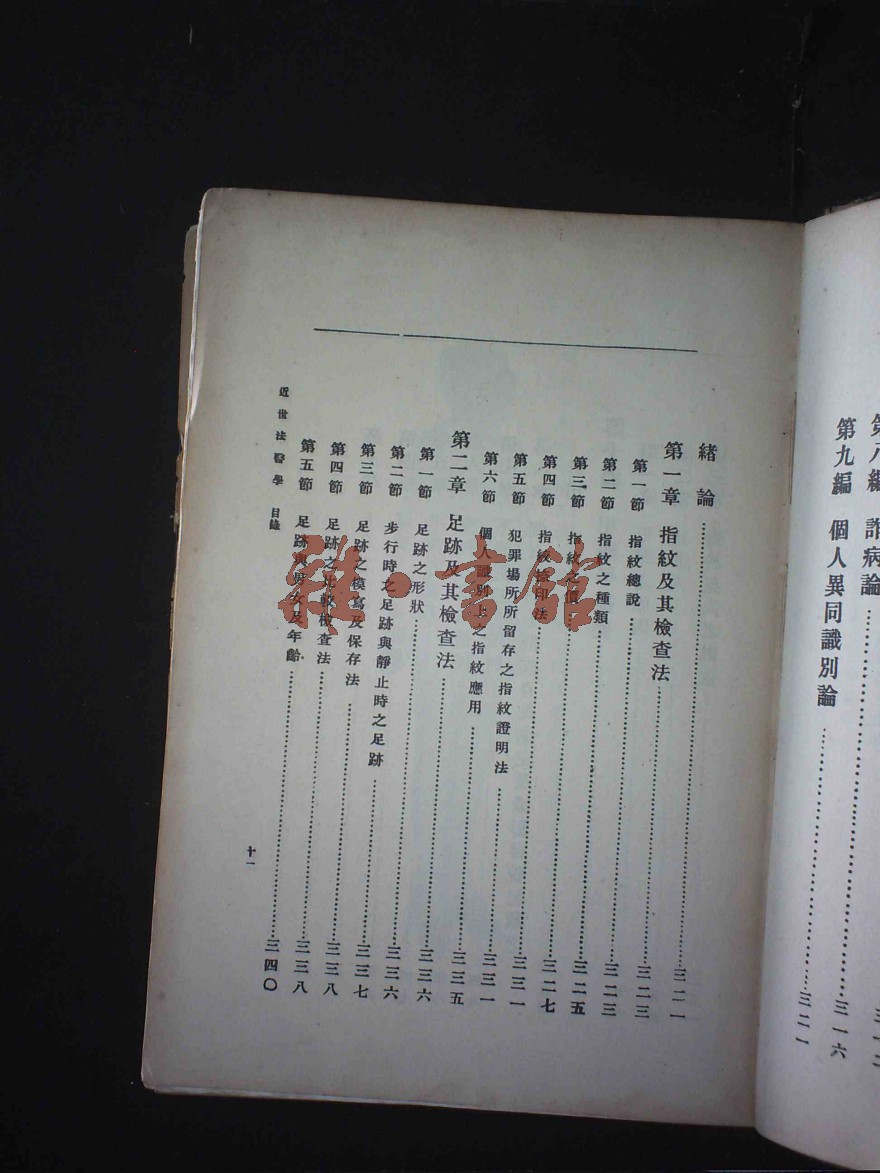 三一二
第八編 詐病論……三一六
第九編 個人異同識別論……三二一
緒論……三二一
第一章 指紋及其檢查法……三二三
第一節 指紋總說……三二三
第二節 指紋之種類……三二五
第三節 指紋之值……三二七
第四節 指紋捺印法……三三一
第五節 犯罪場所所留存之指紋證明法……三三一
第六節 個人識別上之指紋應用……三三五
第二章 足跡及其檢查法……三三六
第一節 足跡之形狀……三三六
第二節 步行時之足跡與靜止時之足跡……三三七
第三節 足跡之模寫及保存法……三三八
第四節 足跡之比較檢查法……三三八
第五節 足跡與男女及年齡……三四〇
近世法醫學 目錄
十一
雜·書館